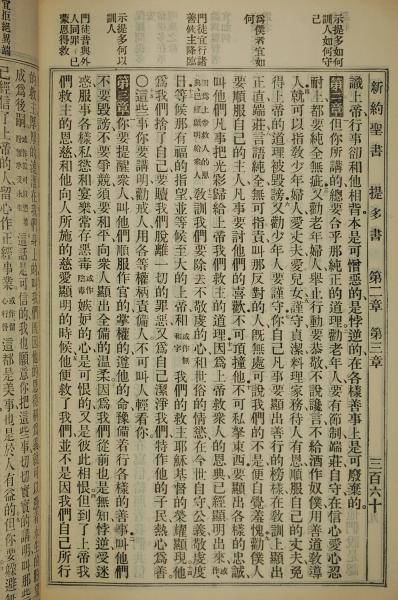 新約聖書 提多書 第二章 第三章 三百六十
示提多如何訓人如何守己
為僕者宜如何
門徒宜行諸善俟主降臨
示提多何以訓人
門徒昔與外人同罪今已蒙恩得救
宜拒絕異端
識上帝行事卻和他相背本是可憎惡的是悖逆的在各樣善事上是可廢棄的
第二章 但你所講的總要合乎那純正的道理勸老年人要有節制端莊自守在信心愛心忍
耐上都要純全無疵又勸老年婦人舉止行動要恭敬不說讒言不給酒作奴僕用善道教導
人就可以指教少年婦人愛丈夫愛兒女謹守貞潔料理家務待人有恩順服自己的丈夫免
得上帝的道理被毀謗又勸少年人要謹守你自己凡事要顯出善行的榜樣在教訓上顯出
正直端莊言語純全無可指責叫那反對的人既無處可說我們的不是便自覺羞愧勸僕人
要順服自己的主人凡事要討他們的喜歡不可頂撞他不可私拏東西要顯出各樣的忠誠
叫他們凡事把光彩歸給上帝我們救主的道理因為上帝救衆人的恩典已經顯明出來
教訓我們要除去不敬虔的心和世俗的情慾在今世自守公義敬虔度
日等候那有福的指望並等候至大的上帝和 我們的救主耶穌基督的榮耀顯現他
為我們捨了自己要贖我們脫離一切的罪惡又為自己潔淨我們特作他的子民熱心為善
〇這些事你要講明勸戒人用各等權柄責備人不可叫人輕看你
第三章 你要提醒衆人叫他們順服作官的掌權的遵他的命豫備着行各樣的善事叫他們
不要毀謗不要爭競須要和平向衆人顯出全備的溫柔因為我們從前也是無知悖逆受迷
惑服事各樣私慾和宴樂常存惡毒 嫉妒的心是可恨的又是彼此相恨但到了上帝我
們救主的恩慈和他向人所施的慈愛顯明的時候他便救了我們並不是因我們自己所行
成為後嗣 這話是可信的我也願意你把這些事切切實實的講明
已經信了上帝的人留心作正經事業 這都是美事也是於人有益的但你要